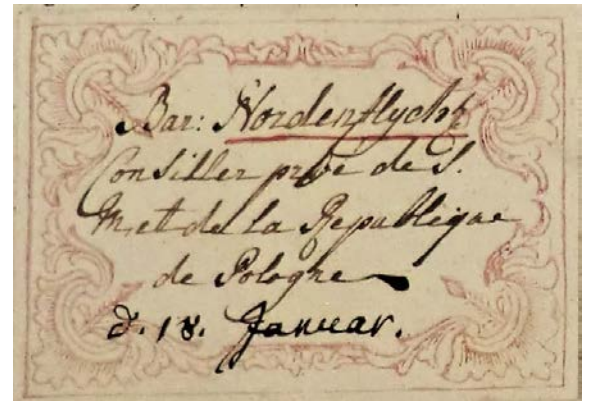 Bar: Nordenflycht
Consiller privé de S.
M. et de la Republique
de Pologne
d. 18. Januar.